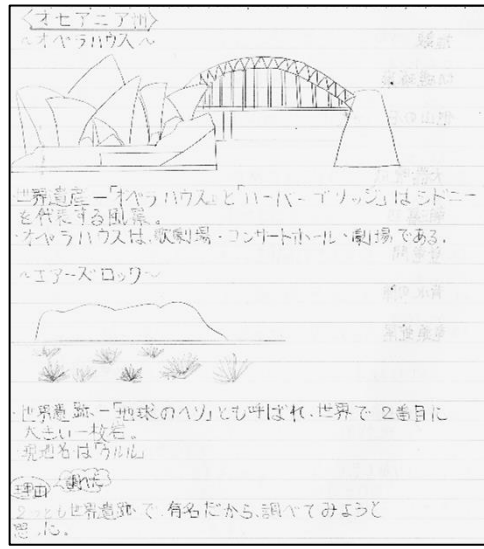 〈オセアニア州〉
～オペラハウス～
世界遺産ー「オペラハウス」と「ハーバーブリッジ」はシドニー
を代表する風景。
・オペラハウスは、歌劇場・コンサートホール・劇場である。
～エアーズロック～
・世界遺跡ー「地球のヘソ」とも呼ばれ、世界で2番目に
大きい一枚岩。
現地名は「ウルル」
理由 調べた
2つとも世界遺跡で、有名だから、調べてみようと
思った。